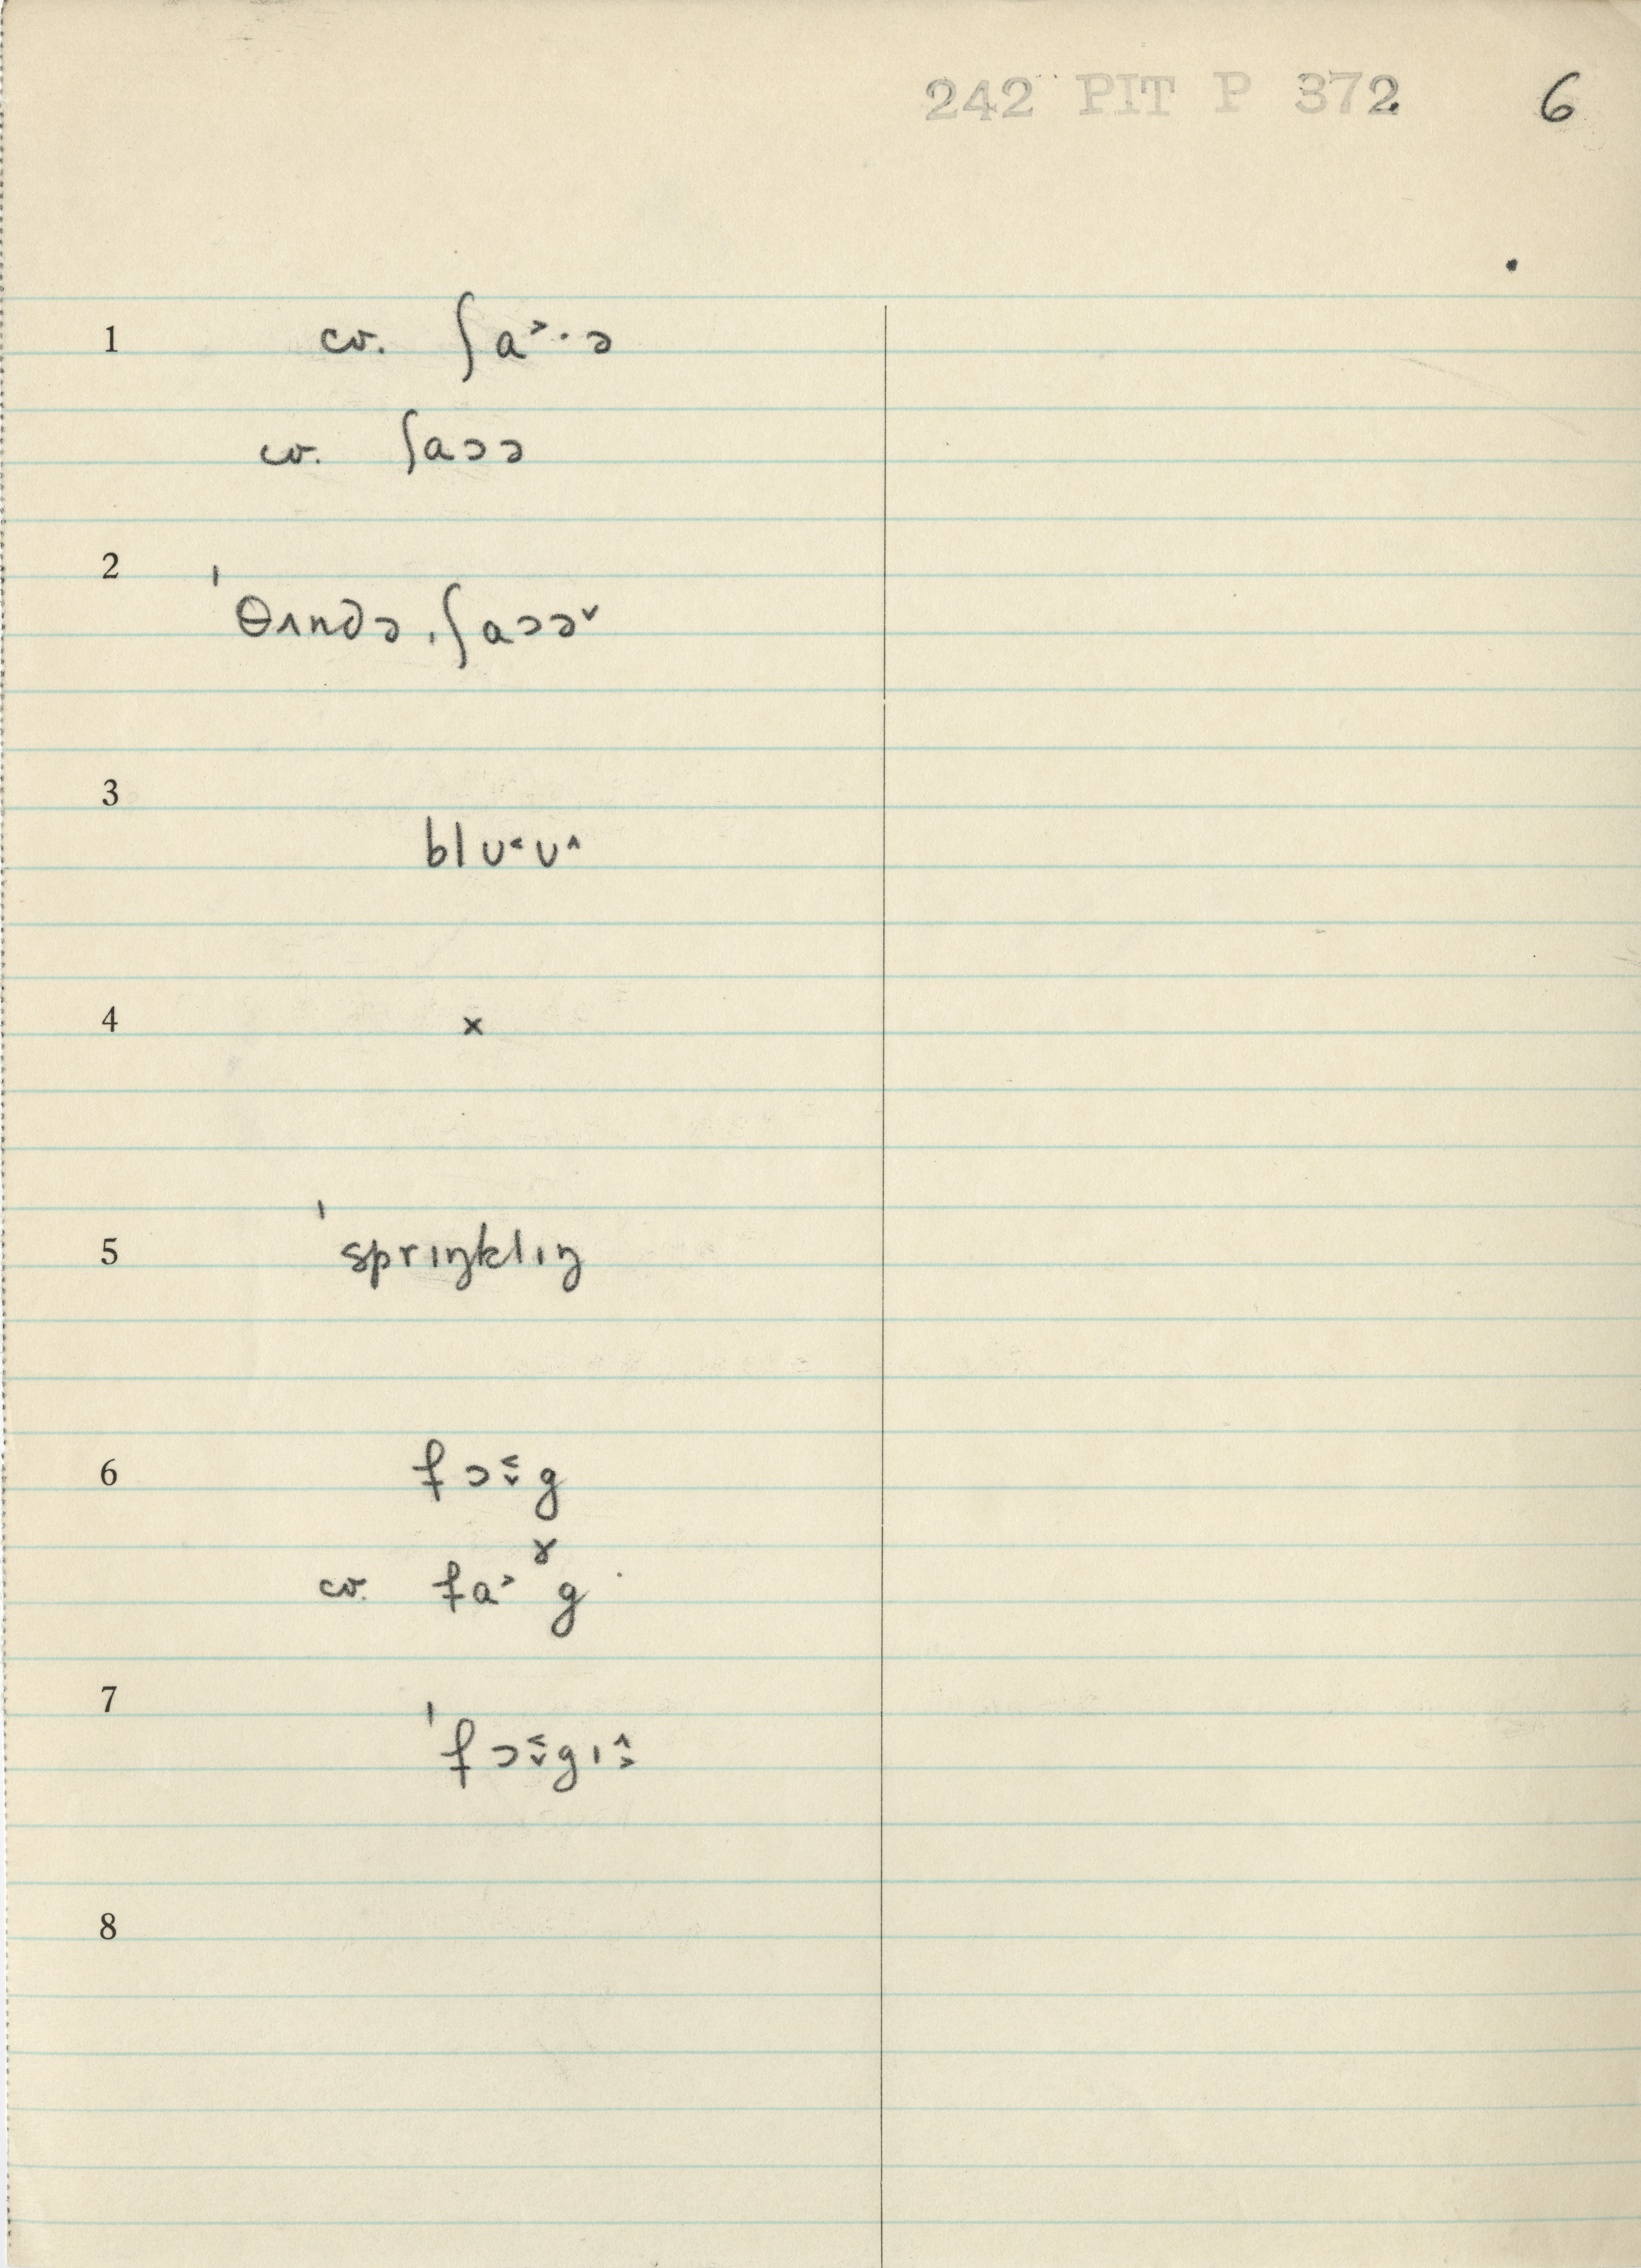 242 PIT P 372 6
1 cv. ʃa˃·ə
cv. ʃaɔə
2 ˈθʌndə ˌʃaɔə˅
3 blʊ˂ʊ˄
4 ×
5 ˈsprɪŋklɪŋ
6 fɔ˂˅g
cv. fa˃ɤg
7 ˈfɔ˂˅gɪ˄˃
8